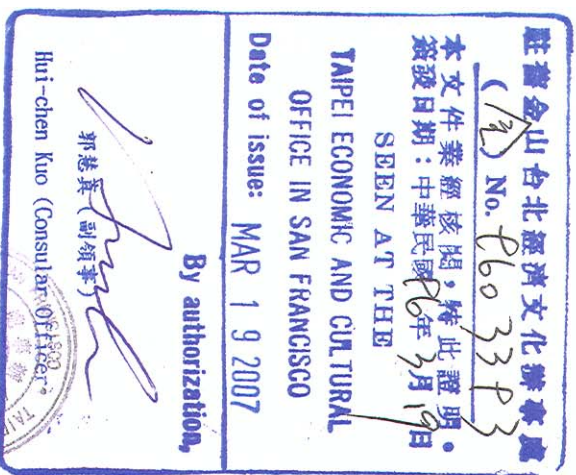 駐舊金山台北經濟文化辦事處
No. 9603393
本文件業經核閱，特此證明。
簽發日期：中華民國96年3月19日
SEEN AT THE
TAIPEI ECONOMIC AND CULTURAL
OFFICE IN SAN FRANCISCO
Date of issue: MAR 1 9 2007
By authorization,
郭慧真(副領事)
Hui-chen Kuo (Consular Officer)